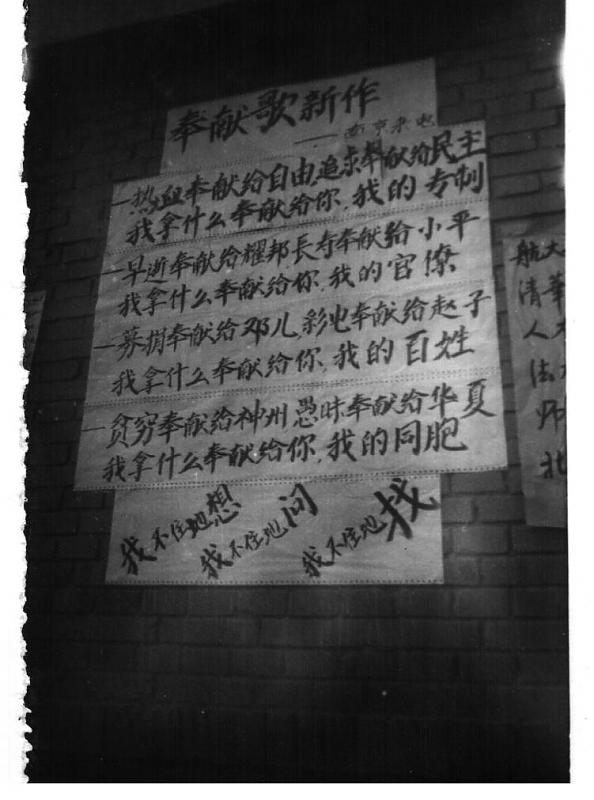 奉献歌新作
——南京来电
一热血奉献给自由,追求奉献给民主
我拿什么奉献给你,我的专制
一早逝奉献给耀邦長寿奉献给小平
我拿什么奉献给你,我的官僚
一募捐奉献给邓儿,彩电奉献给赵子
我拿什么奉献给你,我的百姓
一贫穷奉献给神州愚昧奉献给华夏
我拿什么奉献给你,我的同胞
我不住地想
我不住地问
我不住地找
航大
清華
人
法
师
北